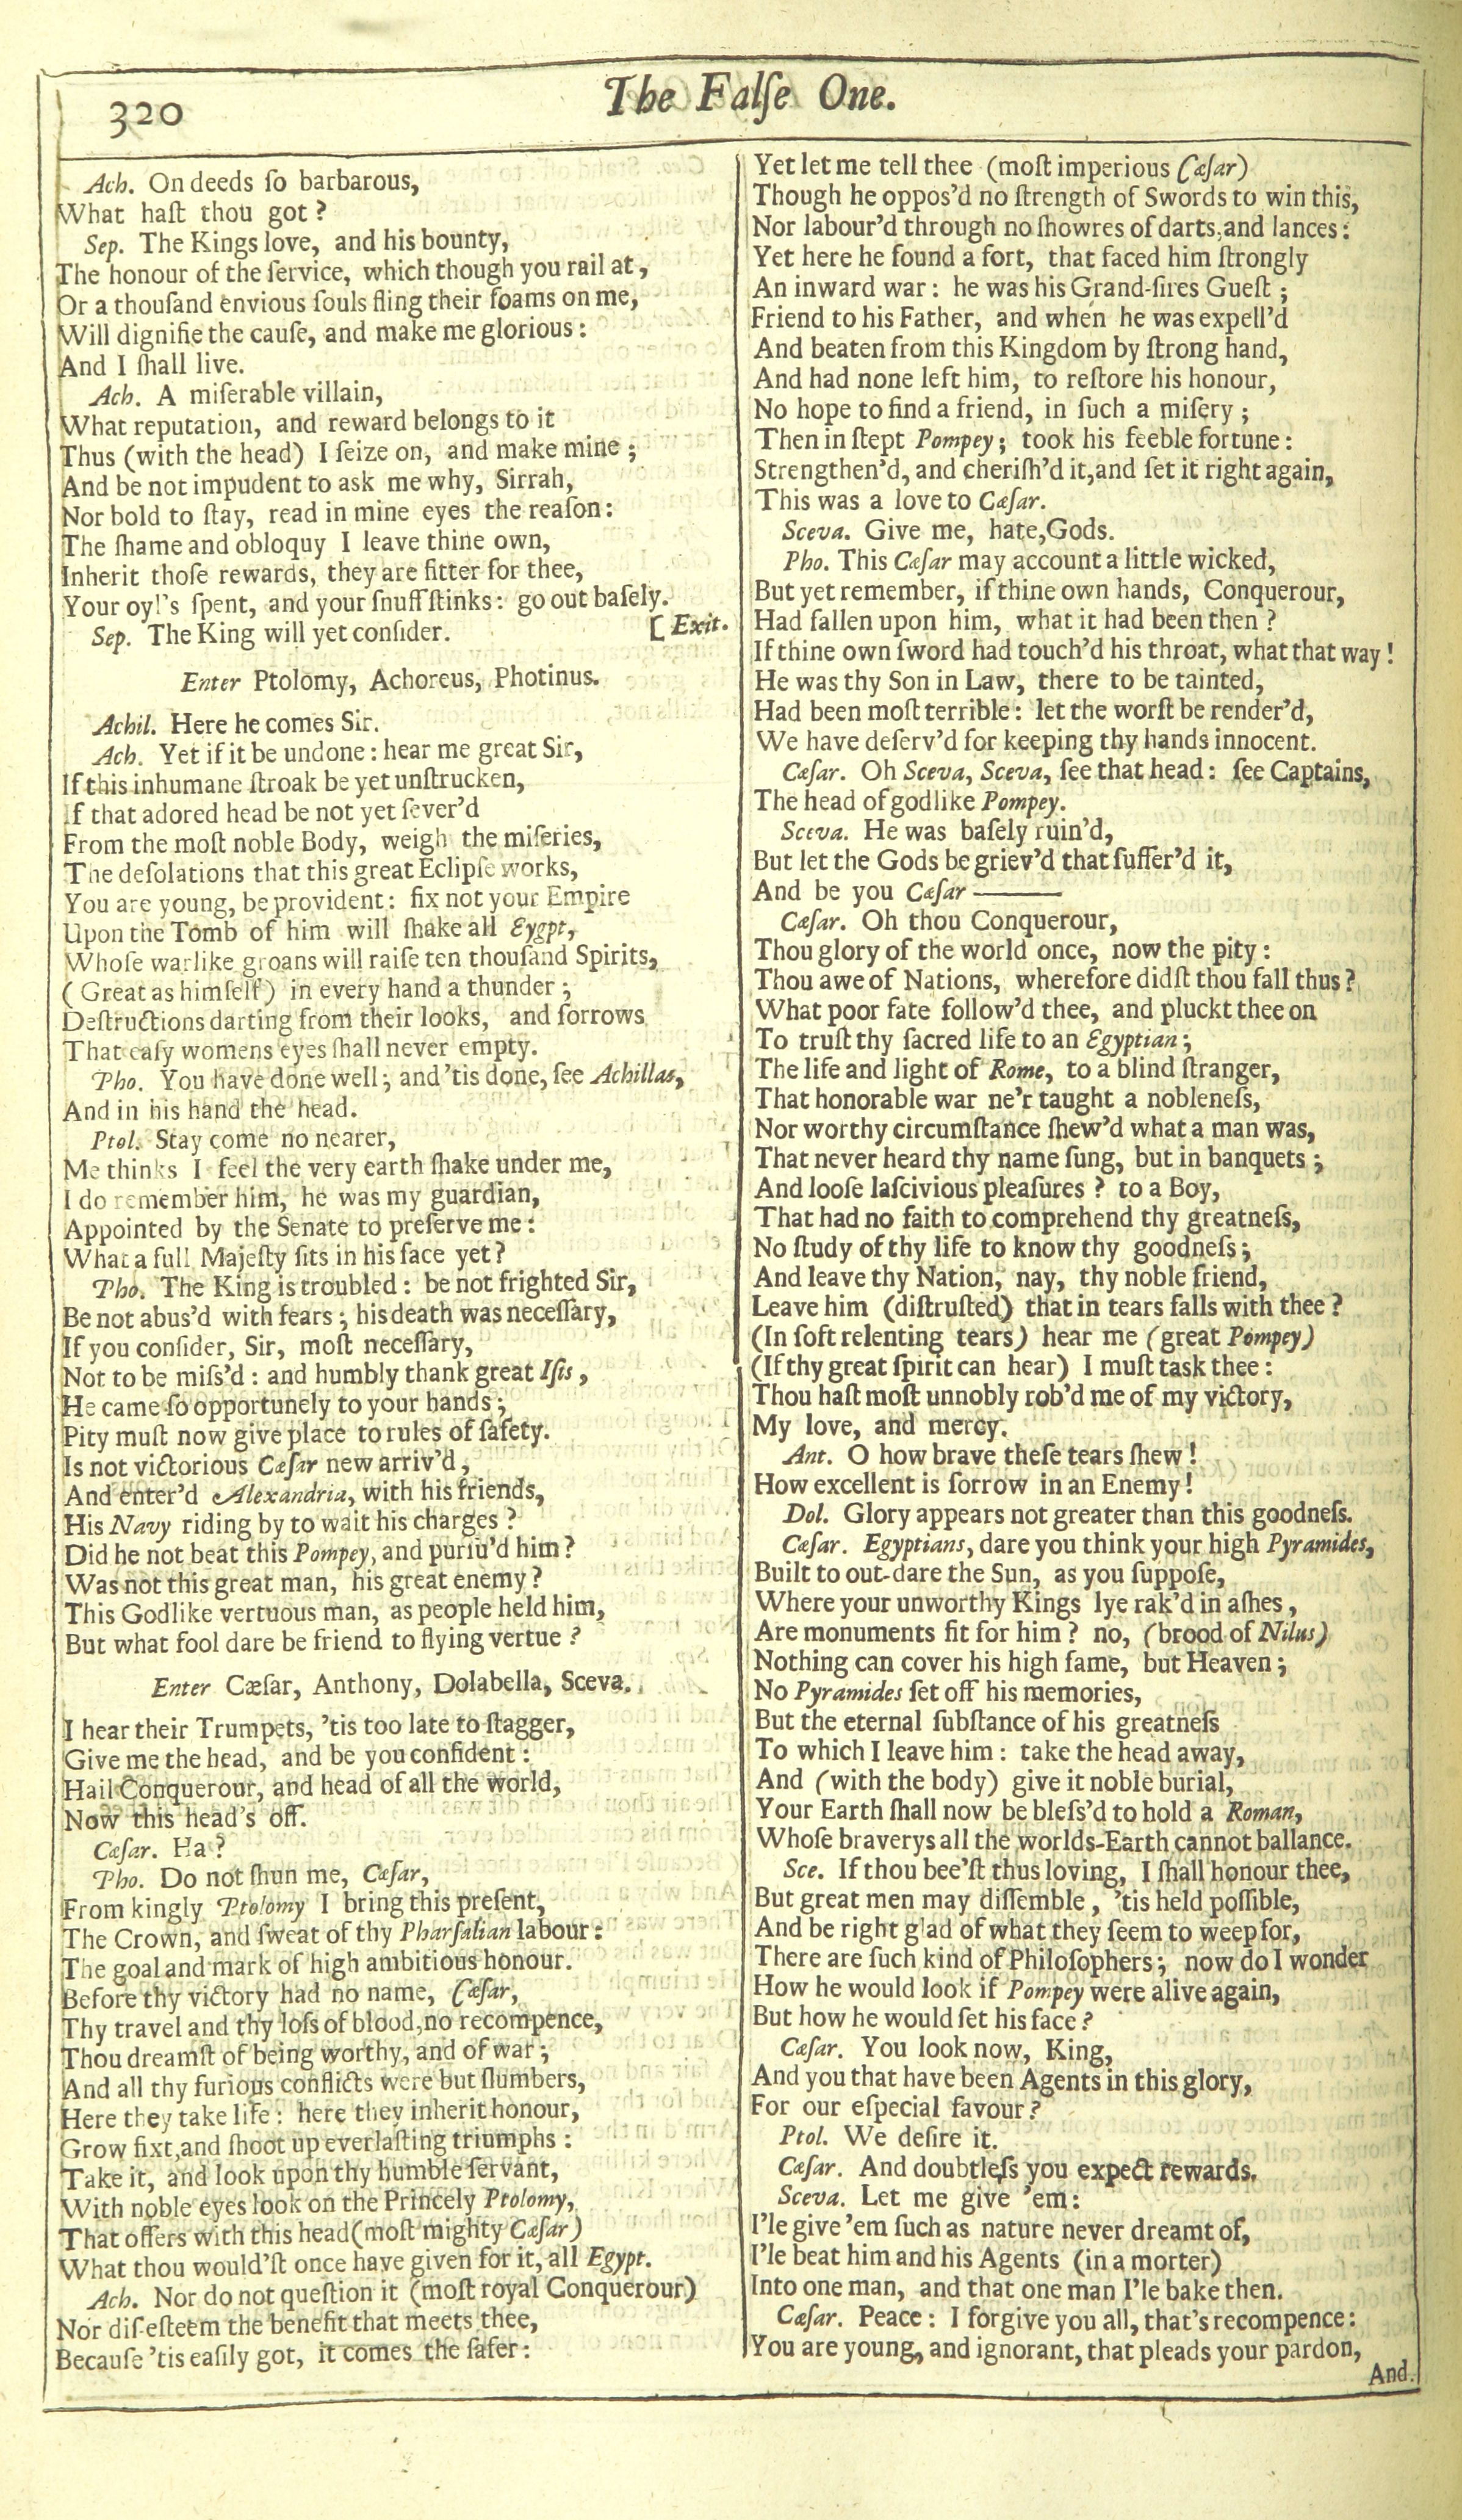 320
The Falſe One.
Ach. On deeds ſo barbarous,
What haſt thou got?
Sep. The Kings love, and his bounty,
The honour of the ſervice, which though you rail at,
Or a thouſand envious ſouls fling their foams on me,
Will dignifie the cauſe, and make me glorious:
And I ſhall live.
Ach. A miſerable villain,
What reputation, and reward belongs to it
Thus (with the head) I ſeize on, and make mine;
And be not impudent to ask me why, Sirrah,
Nor bold to ſtay, read in mine eyes the reaſon:
The ſhame and obloquy I leave thine own,
Inherit thoſe rewards, they are fitter for thee,
Your oyl's ſpent, and your ſnuff ſtinks: go out baſely.
Sep. The King will yet conſider. [Exit.
Enter Ptolomy, Achoreus, Photinus.
Achil. Here he comes Sir.
Ach. Yet if it be undone: hear me great Sir,
If this inhumane ſtroak be yet unſtrucken,
If that adored head be not yet ſever'd
From the moſt noble Body, weigh the miſeries,
The deſolations that this great Eclipſe works,
You are young, be provident: fix not your Empire
Upon the Tomb of him will ſhake all Eygpt,
Whoſe warlike groans will raiſe ten thouſand Spirits,
(Great as himſelf) in every hand a thunder;
Deſtructions darting from their looks, and ſorrows
That eaſy womens eyes ſhall never empty.
Pho. You have done well; and 'tis done, ſee Achillas,
And in his hand the head.
Ptol. Stay come no nearer,
Me thinks I feel the very earth ſhake under me,
I do remember him, he was my guardian,
Appointed by the Senate to preſerve me:
What a full Majeſty ſits in his face yet?
Pho. The King is troubled: be not frighted Sir,
Be not abus'd with fears; his death was neceſſary,
If you conſider, Sir, moſt neceſſary,
Not to be miſs'd: and humbly thank great Iſis,
He came ſo opportunely to your hands;
Pity muſt now give place to rules of ſafety.
Is not victorious Cæſar new arriv'd,
And enter'd Alexandria, with his friends,
His Navy riding by to wait his charges?
Did he not beat this Pompey, and purſu'd him?
Was not this great man, his great enemy?
This Godlike vertuous man, as people held him,
But what fool dare be friend to flying vertue?
Enter Cæſar, Anthony, Dolabella, Sceva.
I hear their Trumpets, 'tis too late to ſtagger,
Give me the head, and be you confident:
Hail Conquerour, and head of all the world,
Now this head's off.
Cæſar. Ha?
Pho. Do not ſhun me, Cæſar,
From kingly Ptolomy I bring this preſent,
The Crown, and ſweat of thy Pharſalian labour:
The goal and mark of high ambitious honour.
Before thy victory had no name, Cæſar,
Thy travel and thy loſs of blood, no recompence,
Thou dreamſt of being worthy, and of war;
And all thy furious conflicts were but ſlumbers,
Here they take life: here they inherit honour,
Grow fixt, and ſhoot up everlaſting triumphs:
Take it, and look upon thy humble ſervant,
With noble eyes look on the Princely Ptolomy,
That offers with this head (moſt mighty Cæſar)
What thou would'ſt once have given for it, all Egypt.
Ach. Nor do not queſtion it (moſt royal Conquerour)
Nor diſ-eſteem the benefit that meets thee,
Becauſe 'tis eaſily got, it comes the ſafer:
Yet let me tell thee (moſt imperious Cæſar)
Though he oppos'd no ſtrength of Swords to win this,
Nor labour'd through no ſhowres of darts, and lances:
Yet here he found a fort, that faced him ſtrongly
An inward war: he was his Grand-ſires Gueſt;
Friend to his Father, and when he was expell'd
And beaten from this Kingdom by ſtrong hand,
And had none left him, to reſtore his honour,
No hope to find a friend, in ſuch a miſery;
Then in ſtept Pompey; took his feeble fortune:
Strengthen'd, and cheriſh'd it, and ſet it right again,
This was a love to Cæſar.
Sceva. Give me, hate, Gods.
Pho. This Cæſar may account a little wicked,
But yet remember, if thine own hands, Conquerour,
Had fallen upon him, what it had been then?
If thine own ſword had touch'd his throat, what that way!
He was thy Son in Law, there to be tainted,
Had been moſt terrible: let the worſt be render'd,
We have deſerv'd for keeping thy hands innocent.
Cæſar. Oh Sceva, Sceva, ſee that head: ſee Captains,
The head of godlike Pompey.
Sceva. He was baſely ruin'd,
But let the Gods be griev'd that ſuffer'd it,
And be you Cæſar ———
Cæſar. Oh thou Conquerour,
Thou glory of the world once, now the pity:
Thou awe of Nations, wherefore didſt thou fall thus?
What poor fate follow'd thee, and pluckt thee on
To truſt thy ſacred life to an Egyptian;
The life and light of Rome, to a blind ſtranger,
That honorable war ne'r taught a nobleneſs,
Nor worthy circumſtance ſhew'd what a man was,
That never heard thy name ſung, but in banquets;
And looſe laſcivious pleaſures? to a Boy,
That had no faith to comprehend thy greatneſs,
No ſtudy of thy life to know thy goodneſs;
And leave thy Nation, nay, thy noble friend,
Leave him (diſtruſted) that in tears falls with thee?
(In ſoft relenting tears) hear me (great Pompey)
(If thy great ſpirit can hear) I muſt task thee:
Thou haſt moſt unnobly rob'd me of my victory,
My love, and mercy.
Ant. O how brave theſe tears ſhew!
How excellent is ſorrow in an Enemy!
Dol. Glory appears not greater than this goodneſs.
Cæſar. Egyptians, dare you think your high Pyramides,
Built to out-dare the Sun, as you ſuppoſe,
Where your unworthy Kings lye rak'd in aſhes,
Are monuments fit for him? no, (brood of Nilus)
Nothing can cover his high fame, but Heaven;
No Pyramides ſet off his memories,
But the eternal ſubſtance of his greatneſs
To which I leave him: take the head away,
And (with the body) give it noble burial,
Your Earth ſhall now be bleſs'd to hold a Roman,
Whoſe braverys all the worlds-Earth cannot ballance.
Sce. If thou bee'ſt thus loving, I ſhall honour thee,
But great men may diſſemble, 'tis held poſſible,
And be right glad of what they ſeem to weep for,
There are ſuch kind of Philoſophers; now do I wonder
How he would look if Pompey were alive again,
But how he would ſet his face?
Cæſar. You look now, King,
And you that have been Agents in this glory,
For our eſpecial favour?
Ptol. We deſire it.
Cæſar. And doubtleſs you expect rewards.
Sceva. Let me give 'em:
I'le give 'em ſuch as nature never dreamt of,
I'le beat him and his Agents (in a morter)
Into one man, and that one man I'le bake then.
Cæſar. Peace: I forgive you all, that's recompence:
You are young, and ignorant, that pleads your pardon,
And.